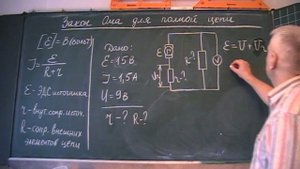 Закон Ома для полной цепи
[ℰ] = В (Вольт)
I = ℰ / R + r
ℰ - ЭДС источника
r - внут. сопр. источ.
R - сопр. внешних
элементов цепи
Дано:
ℰ = 15 В
I = 1,5 А
U = 9 В
r - ? R - ?
ℰ
r - ?
R - ?
V
ℰ = U +